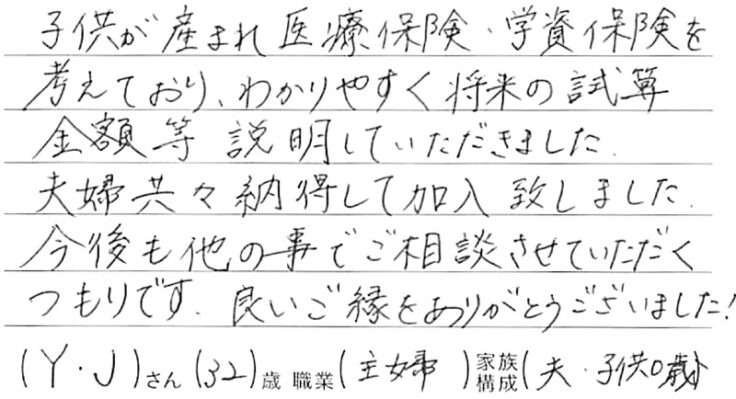 子供が産まれ医療保険・学資保険を
考えており、わかりやすく将来の試算
金額等 説明していただきました.
夫婦共々納得して加入致しました.
今後も他の事でご相談させていただく
つもりです. 良いご縁をありがとうございました!
(Y・J)さん(32)歳 職業(主婦)家族構成(夫・子供0歳)